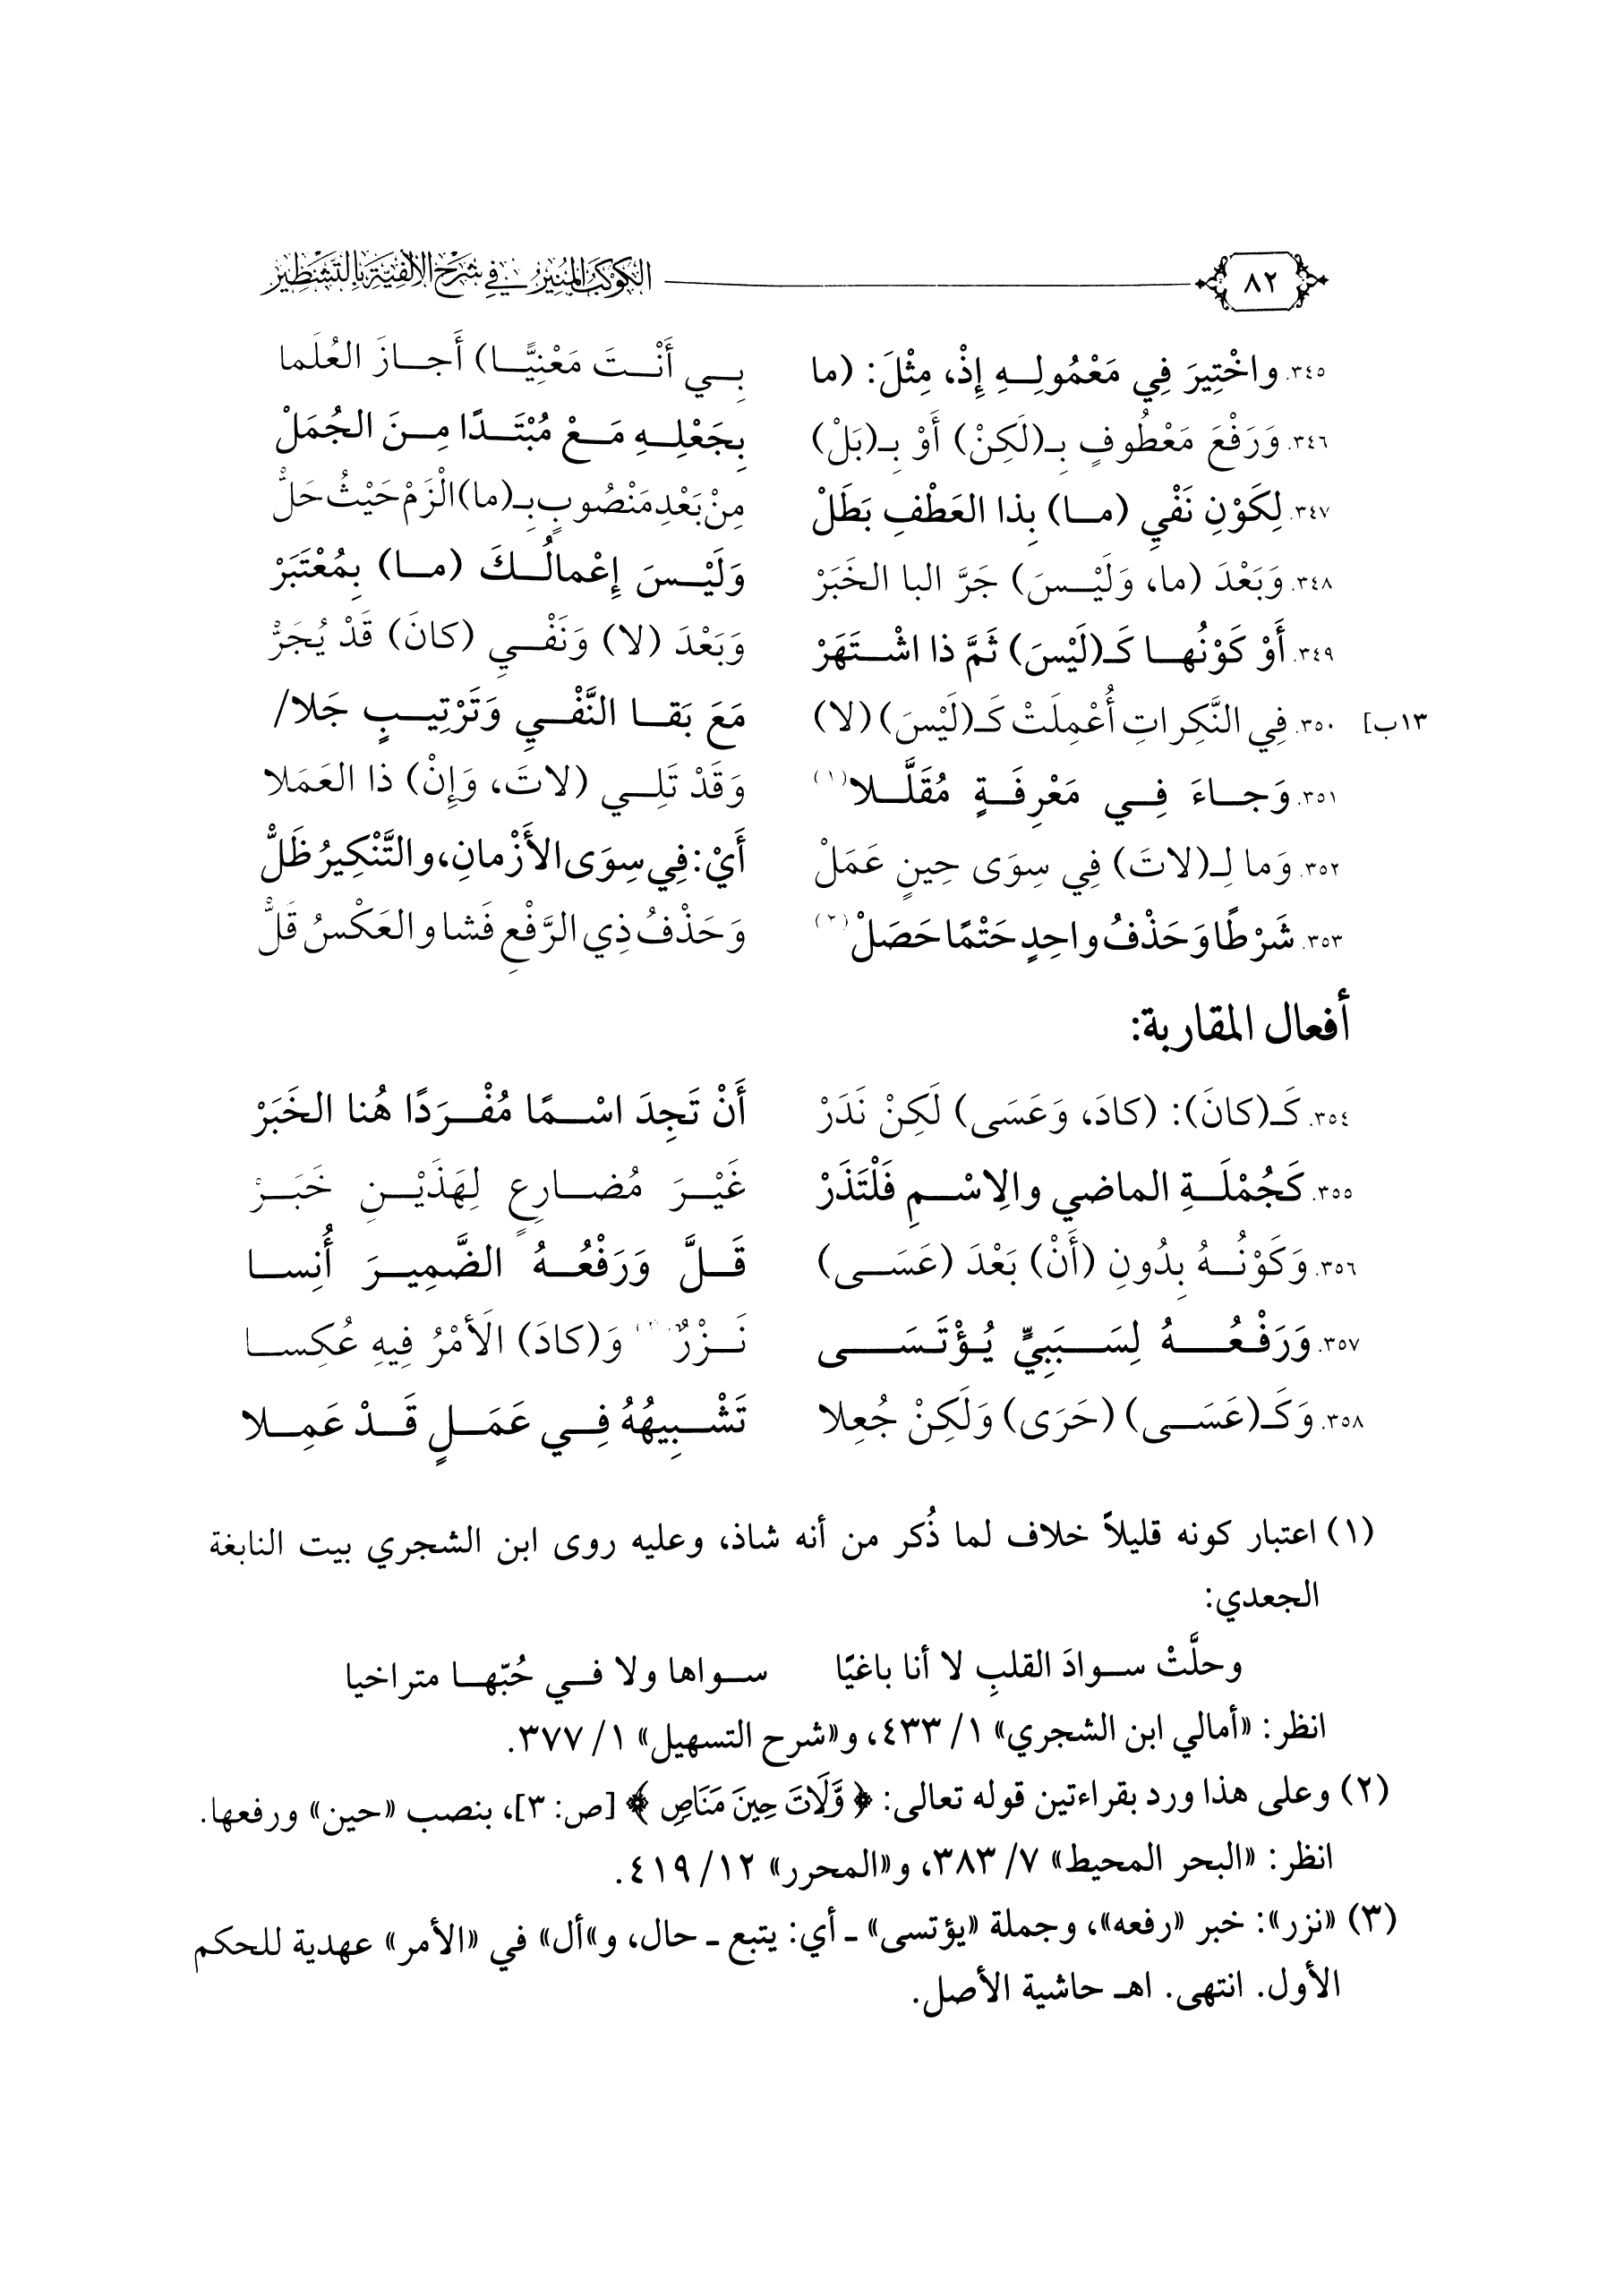 ٨٢ الكَوْكَبُ المُنِيرُ فِي شَرْحِ الأَلْفِيَّةِ بِالتَّشْطِيرِ
٣٤٥. واخْتِيرَ فِي مَعْمُولِهِ إِذْ، مِثْلَ: (ما بِي أَنْتَ مَعْنِيًّا) أَجازَ العُلَما
٣٤٦. وَرَفْعَ مَعْطُوفٍ بِـ(لَكِنْ) أَوْ بِـ(بَلْ) بِجَعْلِهِ مَعْ مُبْتَدًا مِنَ الجُمَلْ
٣٤٧. لِكَوْنِ نَفْيِ (ما) بِذا العَطْفِ بَطَلْ مِنْ بَعْدِ مَنْصُوبٍ بِـ(ما) الْزَمْ حَيْثُ حَلّْ
٣٤٨. وَبَعْدَ (ما، وَلَيْسَ) جَرَّ البا الخَبَرْ وَلَيْسَ إِعْمالُكَ (ما) بِمُعْتَبَرْ
٣٤٩. أَوْ كَوْنُها كَـ(لَيْسَ) ثَمَّ ذا اشْتَهَرْ وَبَعْدَ (لا) وَنَفْيِ (كانَ) قَدْ يُجَرّْ
١٣ب] ٣٥٠. فِي النَّكِراتِ أُعْمِلَتْ كَـ(لَيْسَ) (لا) مَعَ بَقا النَّفْيِ وَتَرْتِيبٍ جَلا/
٣٥١. وَجاءَ فِي مَعْرِفَةٍ مُقَلَّلا(١) وَقَدْ تَلِي (لاتَ، وَإِنْ) ذا العَمَلا
٣٥٢. وَما لِـ(لاتَ) فِي سِوَى حِينٍ عَمَلْ أَيْ: فِي سِوَى الأَزْمانِ، والتَّنْكِيرُ ظَلّْ
٣٥٣. شَرْطًا وَحَذْفُ واحِدٍ حَتْمًا حَصَلْ(٢) وَحَذْفُ ذِي الرَّفْعِ فَشا والعَكْسُ قَلّْ
أفعال المقاربة:
٣٥٤. كَـ(كانَ): (كادَ، وَعَسَى) لَكِنْ نَدَرْ أَنْ تَجِدَ اسْمًا مُفْرَدًا هُنا الخَبَرْ
٣٥٥. كَجُمْلَةِ الماضي والِاسْمِ فَلْتَذَرْ غَيْرَ مُضارِعٍ لِهَذَيْنِ خَبَرْ
٣٥٦. وَكَوْنُهُ بِدُونِ (أَنْ) بَعْدَ (عَسَى) قَلَّ وَرَفْعُهُ الضَّمِيرَ أُنِسا
٣٥٧. وَرَفْعُهُ لِسَبَبِيٍّ يُؤْتَسَى نَزْرٌ(٣) وَ(كادَ) الَامْرُ فِيهِ عُكِسا
٣٥٨. وَكَـ(عَسَى) (حَرَى) وَلَكِنْ جُعِلا تَشْبِيهُهُ فِي عَمَلٍ قَدْ عَمِلا
(١) اعتبار كونه قليلاً خلاف لما ذُكر من أنه شاذ، وعليه روى ابن الشجري بيت النابغة
الجعدي:
وحلَّتْ سوادَ القلبِ لا أنا باغيًا سواها ولا في حُبّها متراخيا
انظر: «أمالي ابن الشجري» ١/ ٤٣٣، و«شرح التسهيل» ١/ ٣٧٧.
(٢) وعلى هذا ورد بقراءتين قوله تعالى: ﴿ وَّلَاتَ حِينَ مَنَاصٍ ﴾ [ص: ٣]، بنصب «حين» ورفعها.
انظر: «البحر المحيط» ٧/ ٣٨٣، و«المحرر» ١٢/ ٤١٩.
(٣) «نزر»: خبر «رفعه»، وجملة «يؤتسى» ـ أي: يتبع ـ حال، و»أل» في «الأمر» عهدية للحكم
الأول. انتهى. اهـ حاشية الأصل.